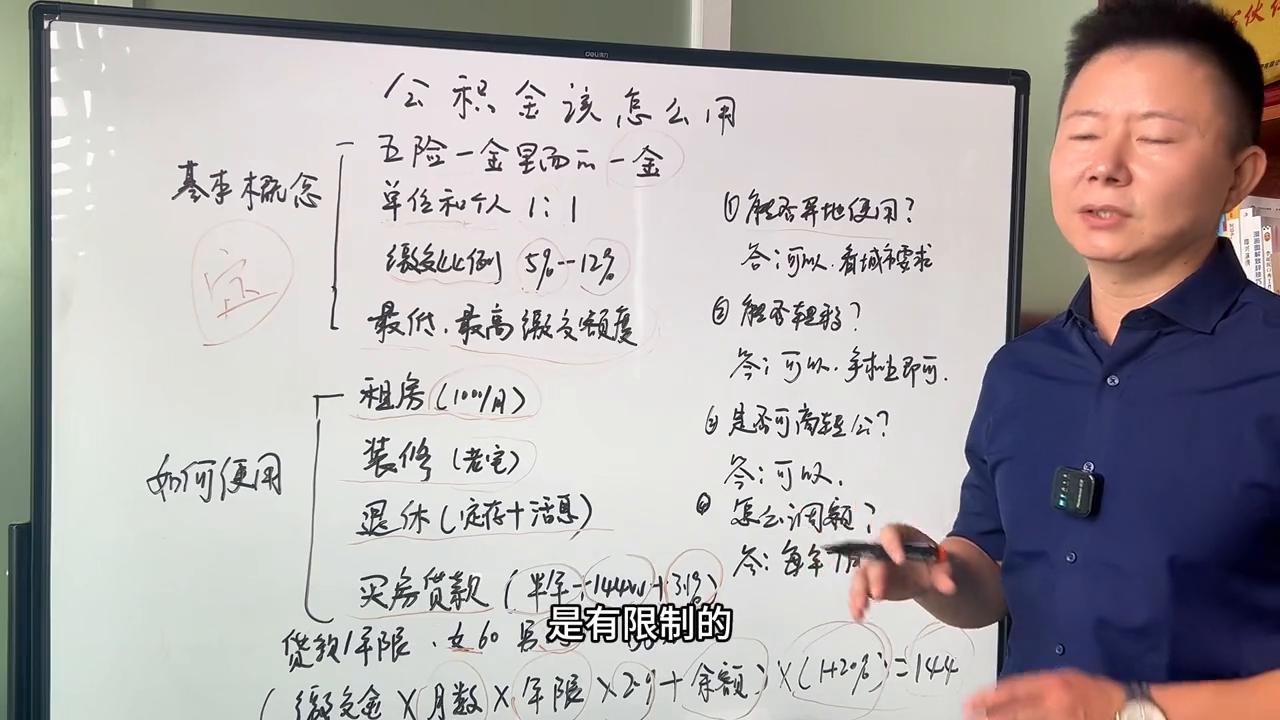 公积金该怎么用
基本概念
五险一金里面的一金
单位和个人 1:1
缴交比例 5%--12%
最低、最高缴交额度
定
如何使用
租房(1000/月)
装修(老宅)
退休(定存+活息)
买房贷款(半年--144w+3.1%)
贷款年限、女60 男
(缴交金×月数×年限×2+余额)×(1+20%)=144
① 能否异地使用?
答:可以、看城市要求
② 能否转移?
答:可以、手机上即可.
是否可商转公?
答:可以.
④ 怎么调额?
答:每年7月
是有限制的
deli